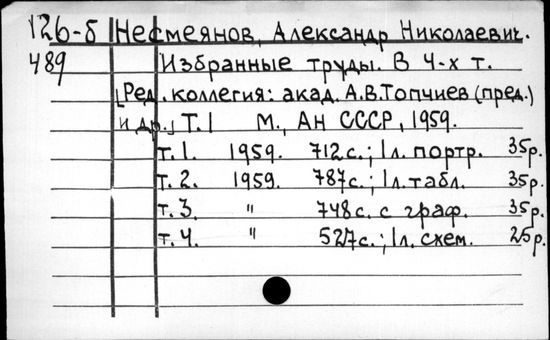 126-5 Несмеянов, Александр Николаевич.
489 Избранные труды. В 4-х т.
[Ред. коллегия: акад. А.В.Топчиев (пред.)
и др.] Т.1 М., Ан СССР, 1959.
т.1. 1959. 712с.; 1л. портр. 35р.
т.2. 1959. 787с.; 1л. табл. 35р.
т.3 " 748с. с граф. 35р.
т.4. " 527с.; 1л. схем. 25р.